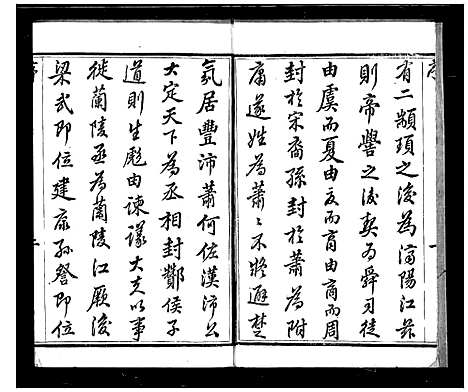 序
有二顓頊之後為滆陽江茲
則帝嚳之後契為舜司徒
由虞而夏由夏而商由商而周
封於宋裔孫封於蕭為附
庸遂姓為蕭蕭不將避楚
氛居豐沛蕭何佐漢沛公
大定天下為丞相封酇侯子
道則生彪由諫議大夫以事
徙蘭陵丞為蘭陵江厥後
梁武即位建康孫詧即位